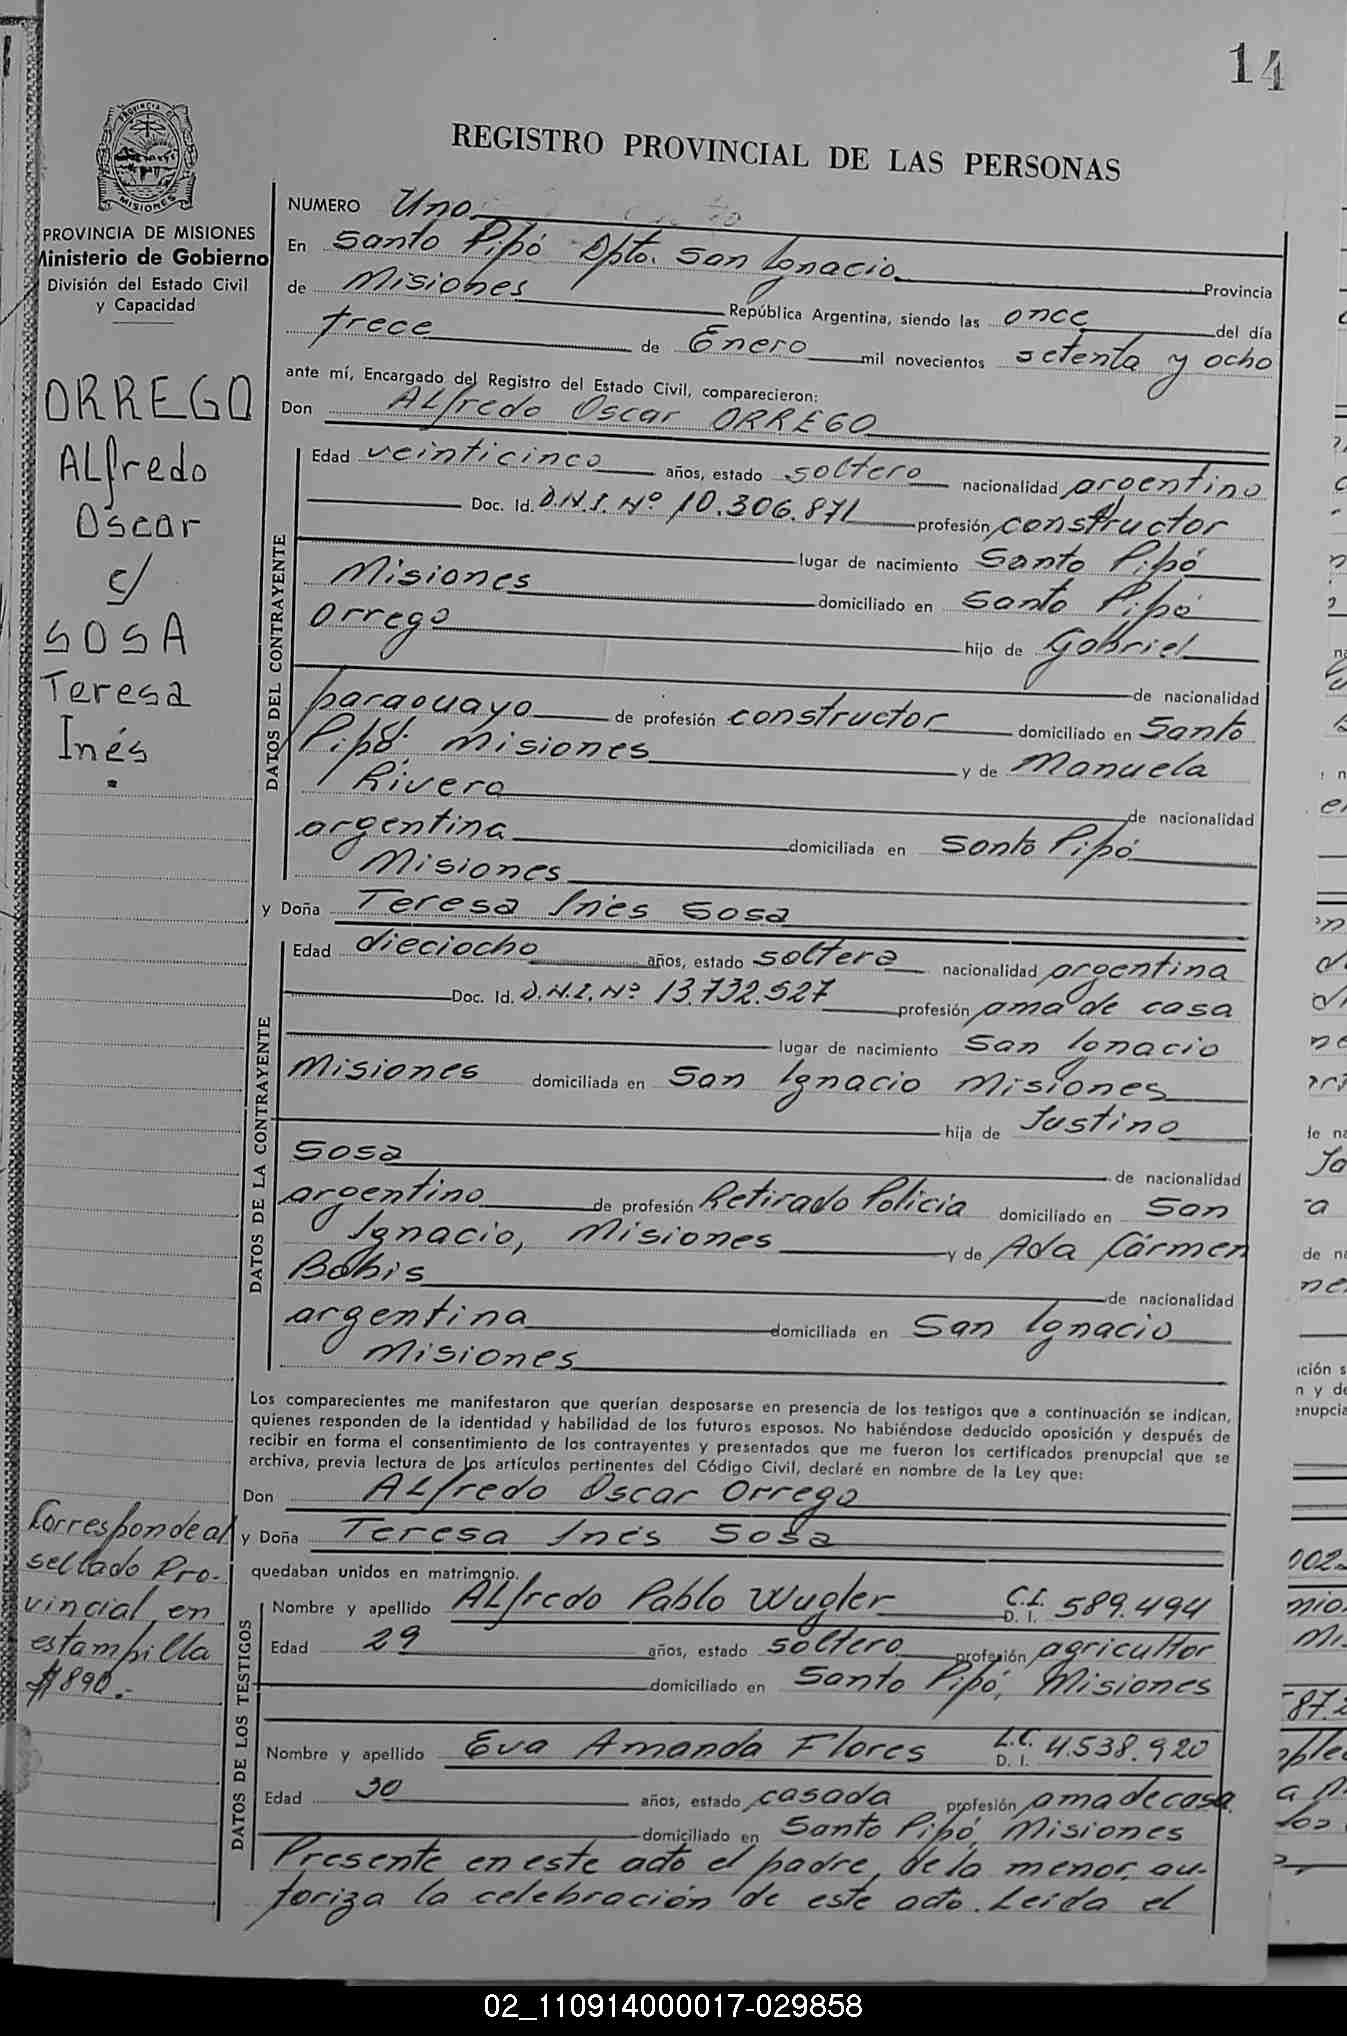 14
PROVINCIA DE
MISIONES
REGISTRO PROVINCIAL DE LAS PERSONAS
PROVINCIA DE MISIONES
Ministerio de Gobierno
División del Estado Civil
y Capacidad
ORREGO
ALfredo
Oscar
c/
SOSA
Teresa
Inés
NUMERO Uno
En Santo Pipó Dpto. San Ignacio
de Misiones Provincia
República Argentina, siendo las once del día
trece de Enero mil novecientos setenta y ocho
ante mí, Encargado del Registro del Estado Civil, comparecieron:
Don ALfredo Oscar ORREGO
DATOS DEL CONTRAYENTE
Edad veinticinco años, estado soltero nacionalidad argentino
Doc. Id. D.N.I. Nº 10.306.871 profesión constructor
lugar de nacimiento Santo Pipó
Misiones domiciliado en Santo Pipó
hijo de Gabriel
Orrego de nacionalidad
paraguayo de profesión constructor domiciliado en Santo
Pipó. Misiones y de Manuela
Rivero de nacionalidad
argentina domiciliada en Santo Pipó
Misiones
y Doña Teresa Inés Sosa
DATOS DE LA CONTRAYENTE
Edad dieciocho años, estado soltera nacionalidad argentina
Doc. Id. D.N.I. Nº 13.732.527 profesión ama de casa
lugar de nacimiento San Ignacio
Misiones domiciliada en San Ignacio Misiones
hija de Justino
Sosa de nacionalidad
argentino de profesión Retirado Policia domiciliado en San
Ignacio, Misiones y de Ada Cármen
Bobis de nacionalidad
argentina domiciliada en San Ignacio
Misiones
Los comparecientes me manifestaron que querían desposarse en presencia de los testigos que a continuación se indican,
quienes responden de la identidad y habilidad de los futuros esposos. No habiéndose deducido oposición y después de
recibir en forma el consentimiento de los contrayentes y presentados que me fueron los certificados prenupcial que se
archiva, previa lectura de los artículos pertinentes del Código Civil, declaré en nombre de la Ley que:
Don ALfredo Oscar Orrego
y Doña Teresa Inés Sosa
quedaban unidos en matrimonio.
Corresponde al
sellado Pro-
vincial en
estampilla
$890.-
DATOS DE LOS TESTIGOS
Nombre y apellido ALfredo Pablo Wugler C.I. D. I. 589.494
Edad 29 años, estado soltero profesión agricultor
domiciliado en Santo Pipó, Misiones
Nombre y apellido Eva Amanda Flores L.C. D. I. 4.538.920
Edad 30 años, estado casada profesión ama de casa
domiciliado en Santo Pipó, Misiones
Presente en este acto el padre, de la menor, au-
toriza la celebración de este acto. Leida el
02_110914000017-029858